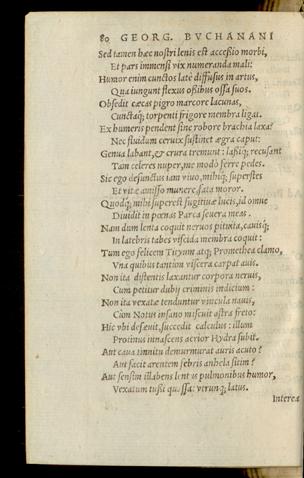 80 GEORG. BVCHANANI
Sed tamen hæc nostri lenis est accessio morbi,
Et pars immensi vix numeranda mali:
Humor enim cunctos latè diffusus in artus,
Qua iungunt flexus oßibus ossa suos.
Obsedit cæcas pigro marcore lacunas,
Cunctaq; torpenti frigore membra ligat.
Ex humeris pendent sine robore brachia laxa:
Nec fluidum ceruix sustinet ægra caput:
Genua labant, & crura tremunt: laßiq; recusant
Tam celeres nuper, me modò ferre pedes.
Sic ego defunctus iam viuo, mihiq; superstes
Et vitæ amisso munere, fata moror.
Quodq; mihi superest fugitiuæ lucis, id omne
Diuidit in pœnas Parca seuera meas.
Nam dum lenta coquit neruos pituita, cauisq;
In latebris tabes viscida membra coquit:
Tum ego felicem Tityum atq; Promethea clamo,
Vna quibus tantùm viscera carpat auis.
Non ita distentis laxantur corpora neruis,
Cum petitur dubij criminis indicium:
Non ita vexatæ tenduntur vincula nauis,
Cùm Notus insano miscuit astra freto:
Hic vbi desæuit, succedit calculus: illum
Protinus innascens acrior Hydra subit.
Aut caua tinnitu demurmurat auris acuto?
Aut facit arentem febris anhela sitim?
Aut sensim illabens lentus pulmonibus humor,
Vexatum tußi quassat vtrunq; latus.
Interea